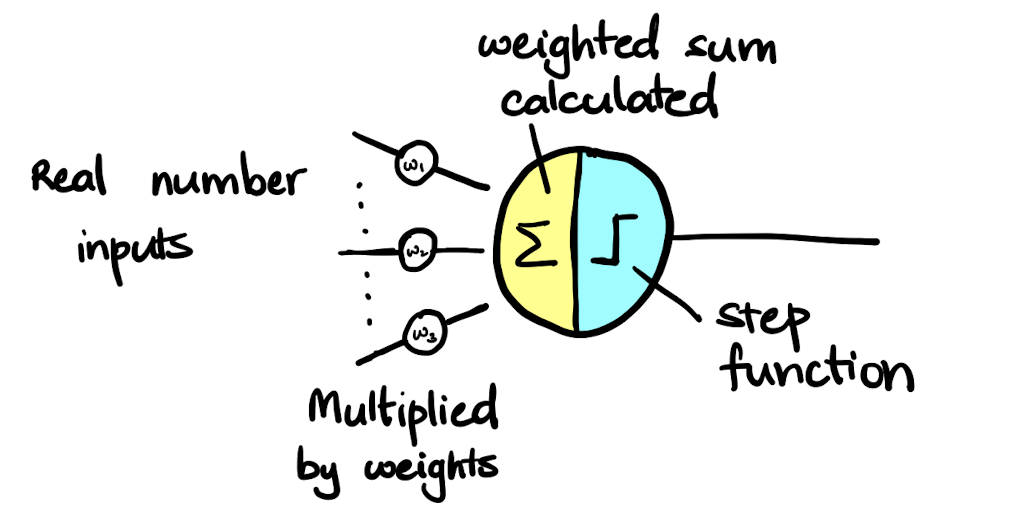 weighted sum
calculated
Real number
inputs
w1
w2
w3
Σ
step
function
Multiplied
by weights